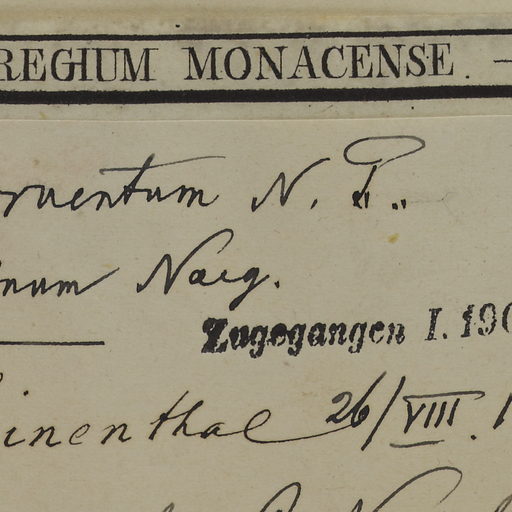 REGIUM MONACENSE. —
ruentum N. P..
num Naeg.
Zugegangen I. 190
inenthal 26/VIII. 1